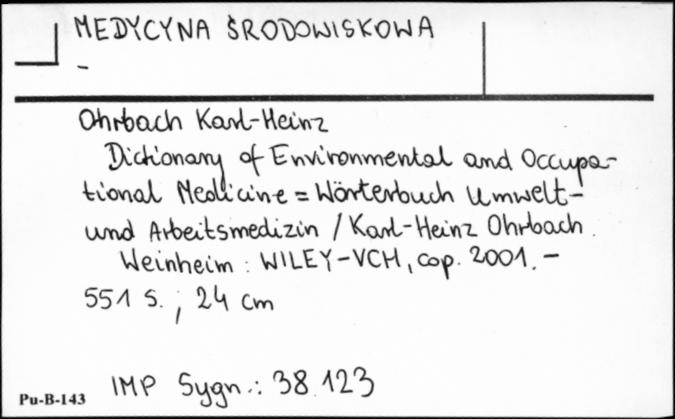 MEDYCYNA ŚRODOWISKOWA
-
Ohrbach Karl-Heinz
Dictionary of Environmental and Occupa-
tional Medicine = Wörterbuch Umwelt-
und Arbeitsmedizin / Karl-Heinz Ohrbach.
Weinheim : WILEY-VCH, cop. 2001. -
551 s. ; 24 cm
IMP Sygn.: 38.123
Pu-B-143